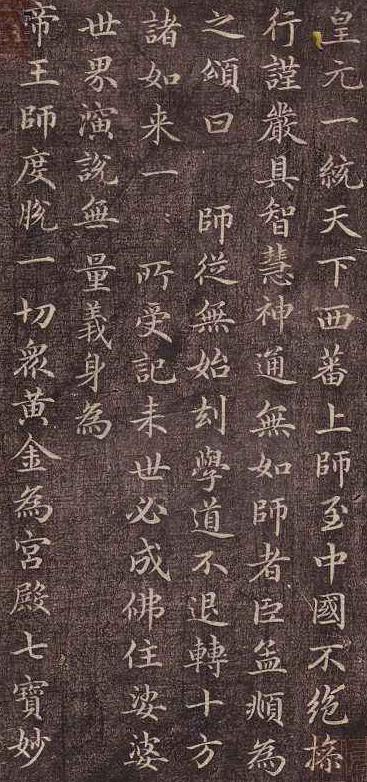 皇元一統天下西蕃上師至中國不絶操
行謹嚴具智慧神通無如師者臣孟頫為
之頌曰 師從無始刧學道不退轉十方
諸如来一〻所受記来世必成佛住娑婆
世界演說無量義身為
帝王師度脫一切衆黄金為宮殿七寶妙